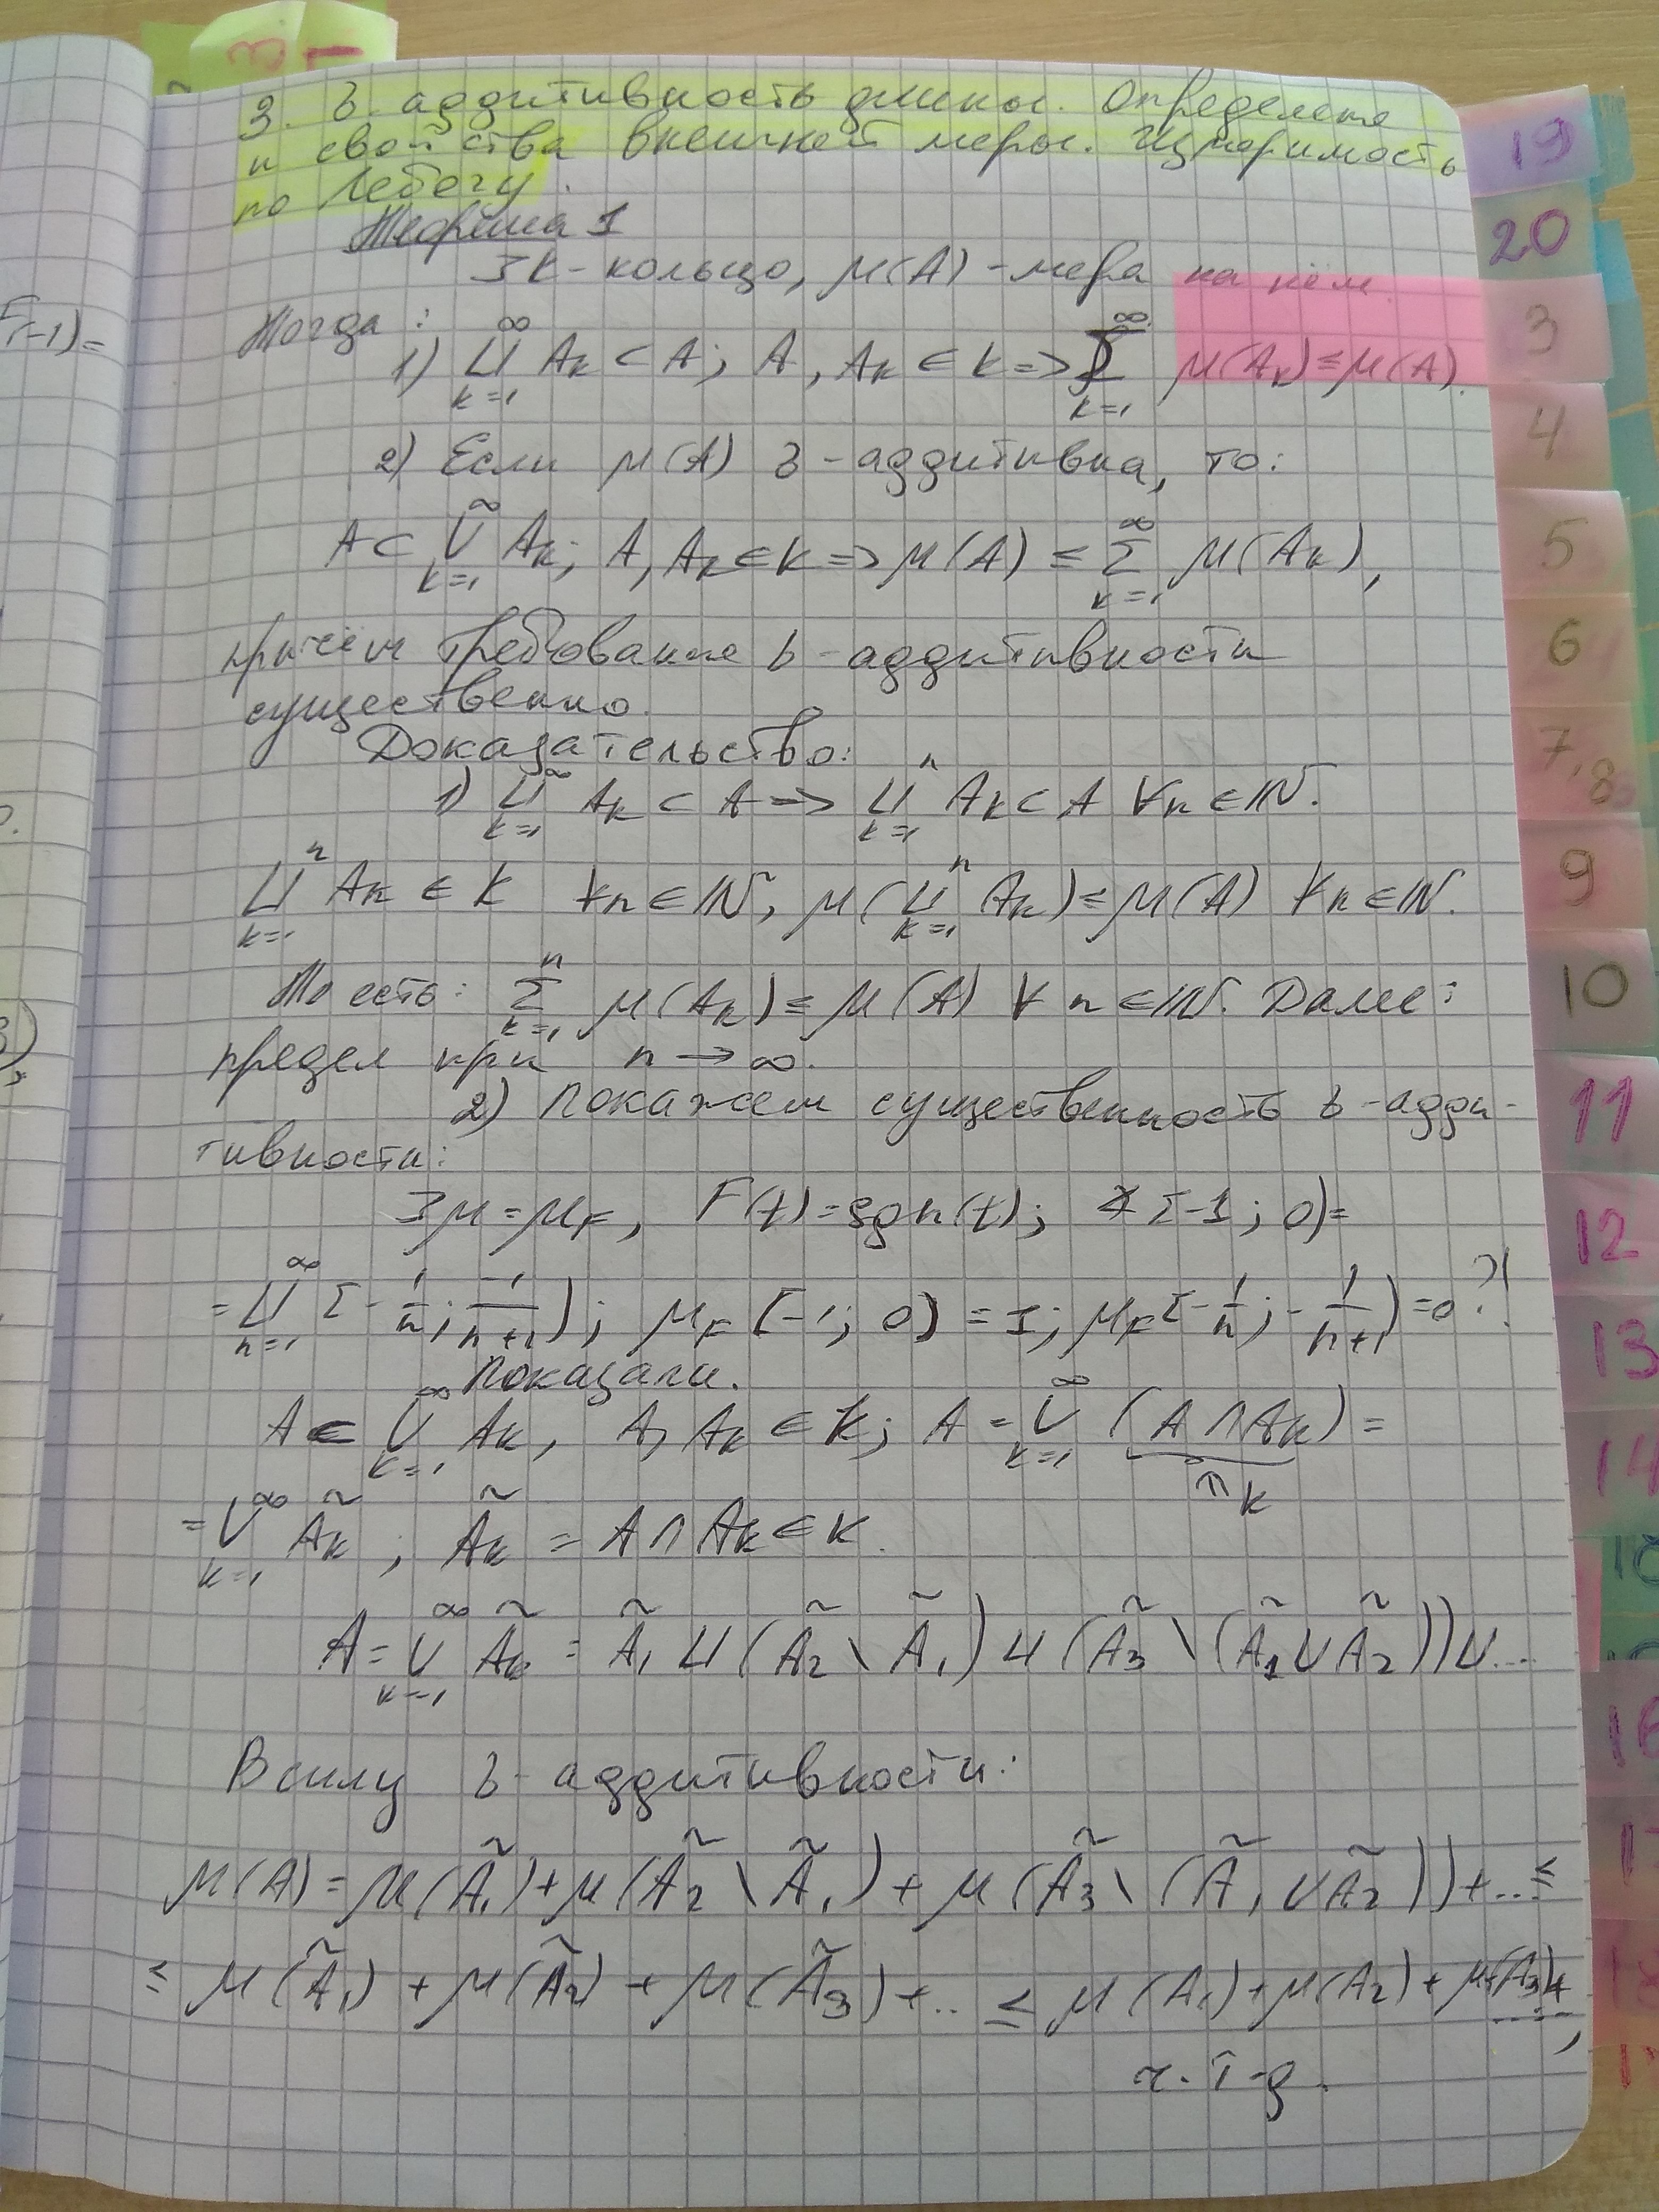 3. σ-аддитивность длины. Определение
и свойства внешней меры. Измеримость
по Лебегу.
Теорема 1
] K - кольцо, μ(A) - мера на нём.
Тогда:
1) ⊔_{k=1}^{∞} A_k ⊂ A; A, A_k ∈ K => Σ_{k=1}^{∞} μ(A_k) ≤ μ(A).
2) Если μ(A) σ-аддитивна, то:
A ⊂ ∪_{k=1}^{∞} A_k; A, A_k ∈ K => μ(A) ≤ Σ_{k=1}^{∞} μ(A_k),
причём требование σ-аддитивности
существенно.
Доказательство:
1) ⊔_{k=1}^{∞} A_k ⊂ A => ⊔_{k=1}^{n} A_k ⊂ A ∀n ∈ ℕ.
⊔_{k=1}^{n} A_k ∈ K ∀n ∈ ℕ, μ(⊔_{k=1}^{n} A_k) ≤ μ(A) ∀n ∈ ℕ.
То есть: Σ_{k=1}^{n} μ(A_k) ≤ μ(A) ∀ n ∈ ℕ. Далее:
предел при n → ∞.
2) Покажем существенность σ-адди-
тивности:
] μ = μ_F, F(t) = sgn(t); [-1; 0) =
= ⊔_{n=1}^{∞} [-1/n; -1/(n+1)); μ_F [-1; 0) = 1; μ_F [-1/n; -1/(n+1)) = 0 ?!
Показали.
A ⊂ ∪_{k=1}^{∞} A_k, A, A_k ∈ K; A = ∪_{k=1}^{∞} (A ∩ A_k) =
∩ K
= ∪_{k=1}^{∞} Ã_k; Ã_k = A ∩ A_k ∈ K.
A = ∪_{k=1}^{∞} Ã_k = Ã_1 ⊔ (Ã_2 \ Ã_1) ⊔ (Ã_3 \ (Ã_1 ∪ Ã_2)) ⊔ ...
В силу σ-аддитивности:
μ(A) = μ(Ã_1) + μ(Ã_2 \ Ã_1) + μ(Ã_3 \ (Ã_1 ∪ Ã_2)) + ... ≤
≤ μ(Ã_1) + μ(Ã_2) + μ(Ã_3) + ... ≤ μ(A_1) + μ(A_2) + μ(A_3) + ...,
ч.т.д.
19
20
3
4
5
6
7,8
9
10
11
12
13
14
16